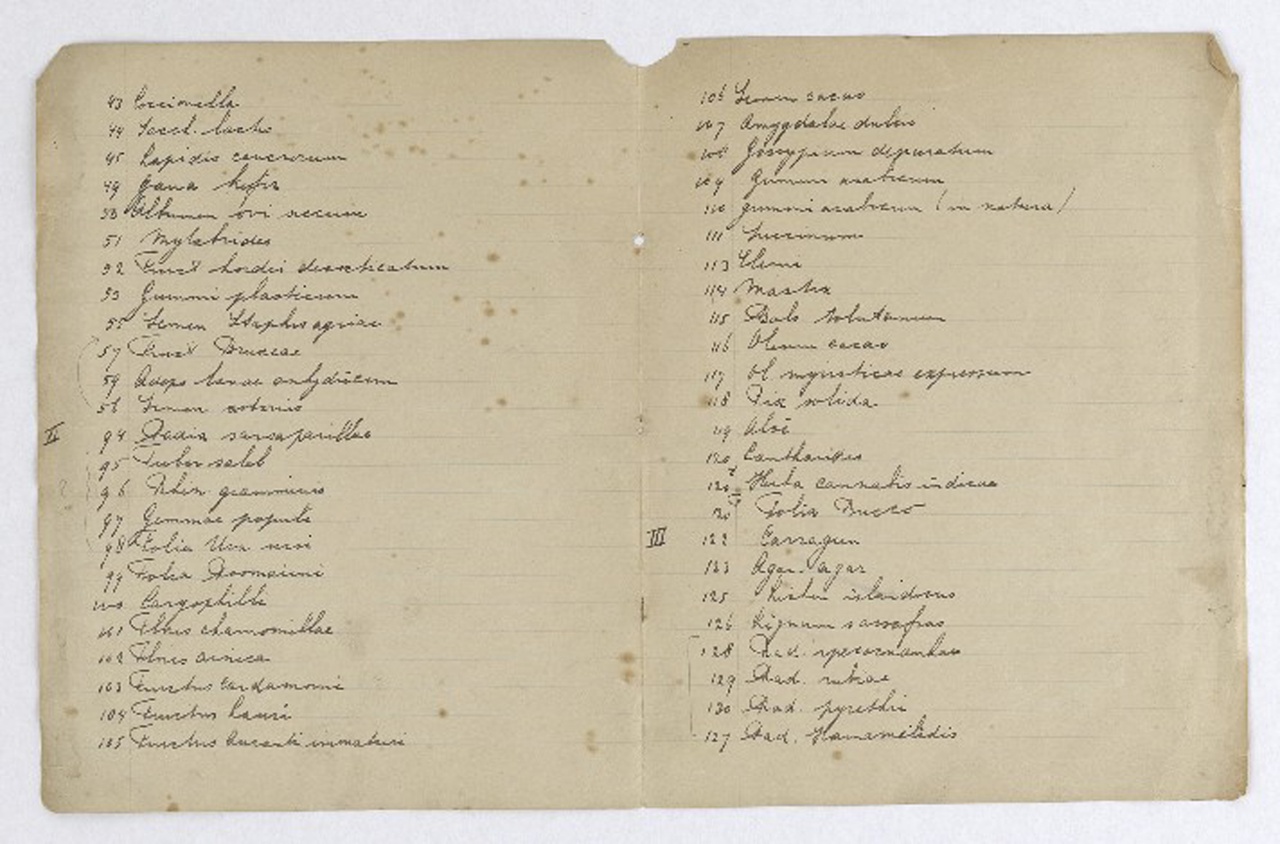 43 Coccionella
44 Sacch. lactis
45 Lapidis cancrorum
49 Grana kefir
50 Albumen ovi siccum
51 Mylabrides
52 Fruct hordei decorticatum
53 Gummi plasticum
55 Semen Staphisagriae
57 Fruct Bruceae
59 Adeps lanae anhydricum
56 Semen
II 94 Radix sarsaparillae
95 Tuber saleb
96 Rhiz. graminis
97 Gemmae populi
98 Folia Uva ursi
99 Folia
100 Caryophilli
101 Flores chamomillae
102 Flores arnica
103 Fructus cardamomi
104 Fructus Lauri
105 Fructus Auranti immaturi
106 Semen cacao
107 Amygdalae dulcis
108 Gossypium depuratum
109 Gummi arabicum
110 gummi arabicum (in natura)
111 Succinum
113 Elemi
114 Mastix
115 Bals tolutanum
116 Oleum cacao
117 Ol. myristicae expressum
118 Pix solida
119 Aloë
120 Cantharides
120 Herba cannabis indicae
Folia Bucco
III 122 Carragen
123 Agar-agar
125 Lichen islandicus
126 Lignum sassafras
128 Rad. ipecacuanhae
129 Rad. rubiae
130 Rad. pyrethri
127 Rad. Hamamelidis